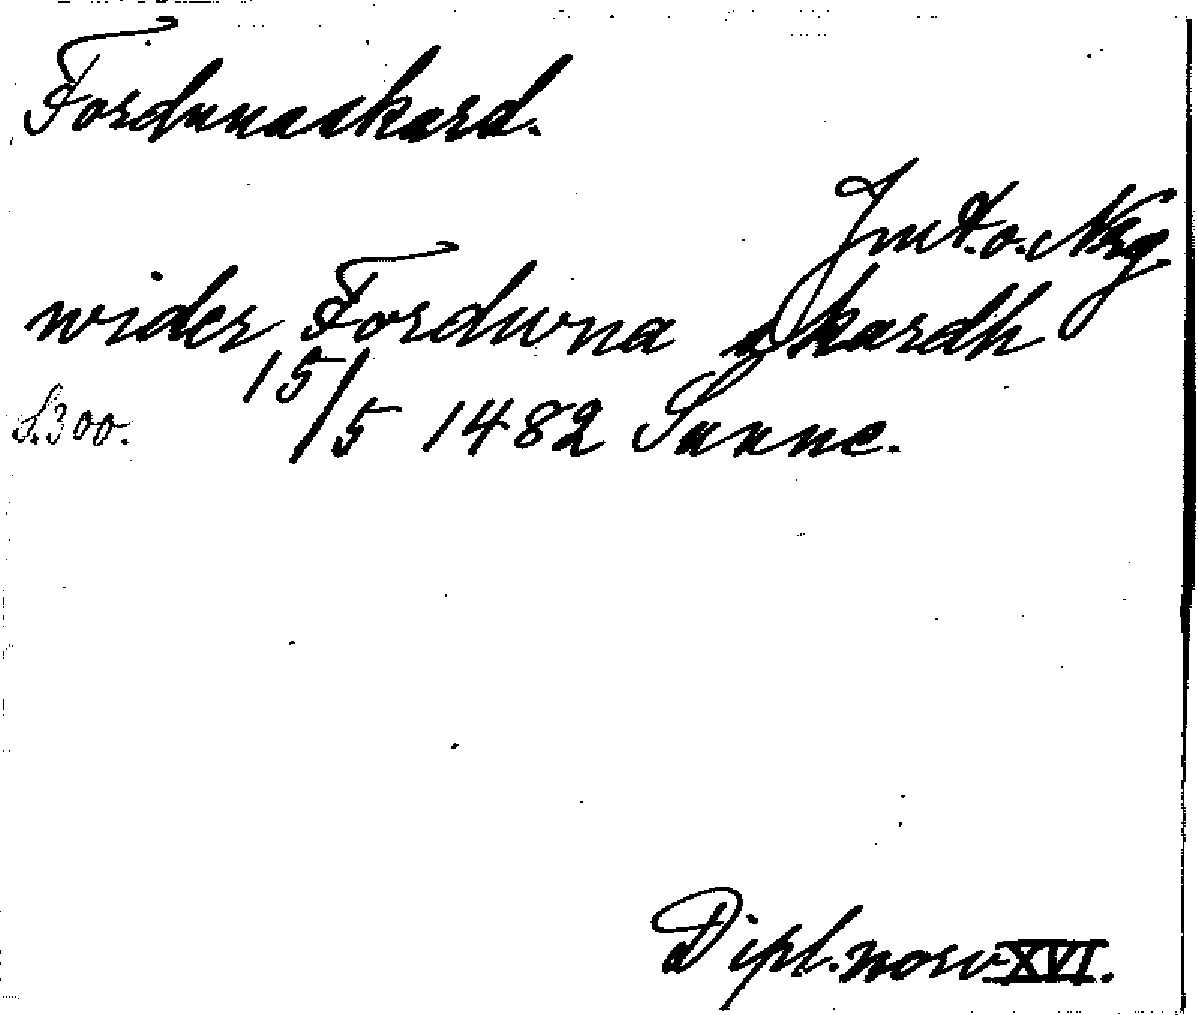 Fordunaskard.
Jmt. o. Nrg
wider Forduna skardh
S. 300. 15/5 1482 Sunne.
Dipl. norv. XVI.